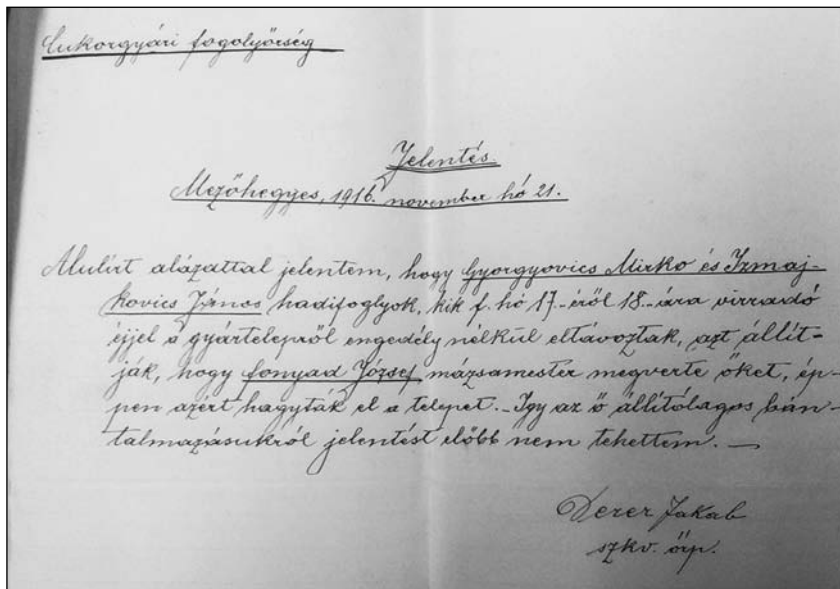 Cukorgyári fogolyőrség
Jelentés.
Mezőhegyes, 1916. november hó 21.
Alulírt alázattal jelentem, hogy Gyorgyovics Mirko és Izmaj-
kovics János hadifoglyok, kik f. hó 17.-éről 18.-ára virradó
éjjel a gyártelepről engedély nélkül eltávoztak, azt állít-
ják, hogy Fonyad József mázsamester megverte őket, ép-
pen azért hagyták el a telepet. - Igy az ő állítólagos bán-
talmazásukról jelentést előbb nem tehettem. -
Derer Jakab
szkv. őrp.